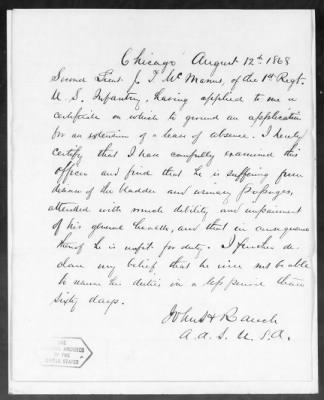 Chicago August 12th 1868
Second Lieut. J. T. McManus, of the 1st Regt.
U. S. Infantry, having applied to me a
certificate on which to ground an application
for an extension of a leave of absence. I hereby
certify that I have carefully examined this
officer and find that he is suffering from
disease of the bladder and urinary passages,
attended with much debility and impairment
of his general health, and that in consequence
thereof he is unfit for duty. I further de-
clare my belief, that he will not be able
to resume his duties in a less period than
sixty days.
John H Rauch
A. A. S. U. S. A.
THE
NATIONAL ARCHIVES
OF THE
UNITED STATES